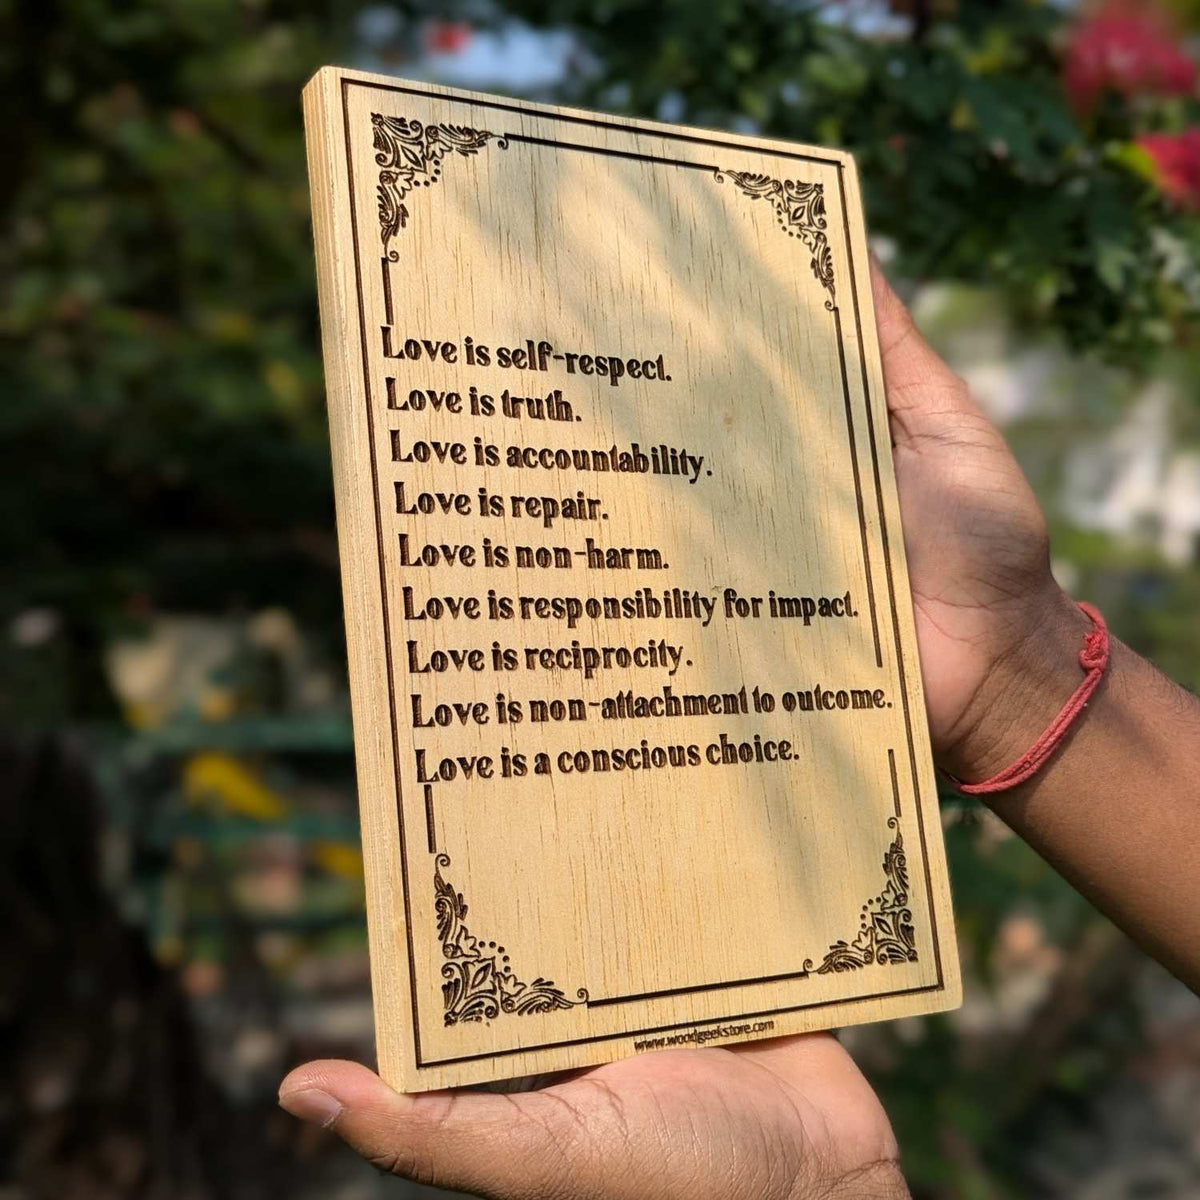 Love is self-respect.
Love is truth.
Love is accountability.
Love is repair.
Love is non-harm.
Love is responsibility for impact.
Love is reciprocity.
Love is non-attachment to outcome.
Love is a conscious choice.
www.woodgeekstore.com